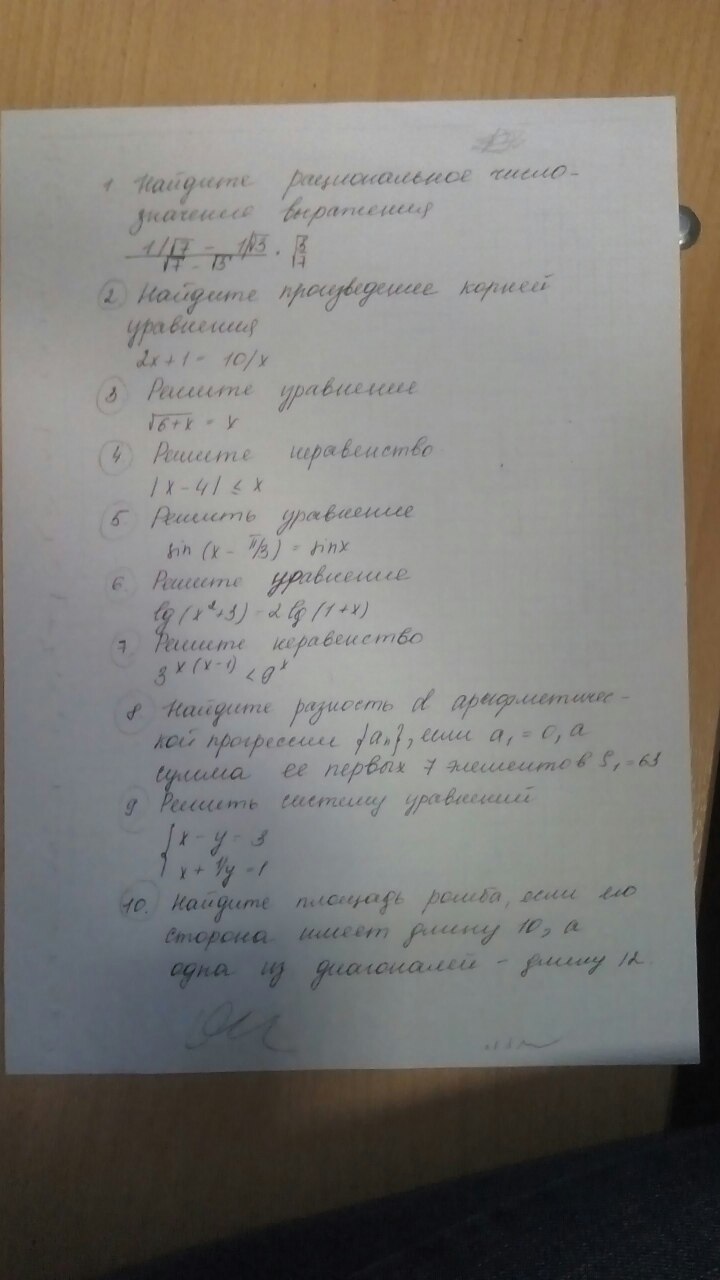 1 Найдите рациональное число-
значение выражения
1/√7 - 1/√3 / √7 - √3 · √3/7
2 Найдите произведение корней
уравнения
2x+1 = 10/x
3 Решите уравнение
√6+x = x
4 Решите неравенство
|x-4| ≤ x
5 Решить уравнение
sin (x - π/3) = sinx
6 Решите уравнение
lg(x²+3) = 2lg(1+x)
7. Решите неравенство
3^x(x-1) < 9^x
8 Найдите разность d арифметичес-
кой прогрессии {aₙ}, если a₁ = 0, а
сумма ее первых 7 элементов S₁ = 63
9 Решить систему уравнений
{ x - y = 3
x + 1/y = 1
10. Найдите площадь ромба, если его
сторона имеет длину 10, а
одна из диагоналей - длину 12